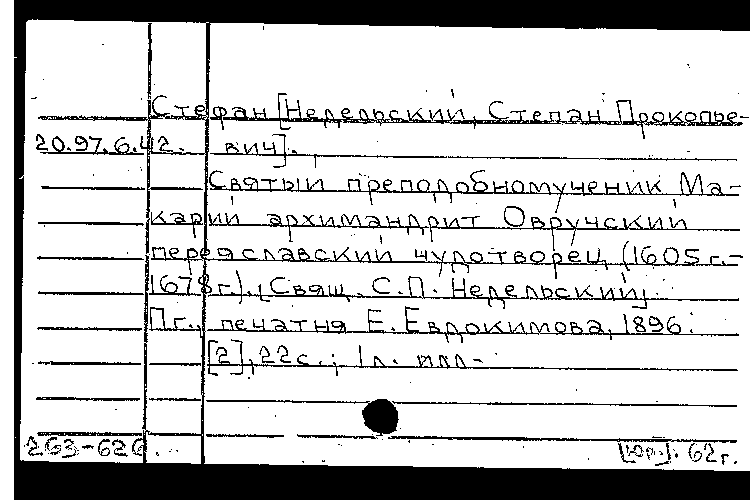 Стефан [Недельский, Степан Прокопье-
20.97.6.42. вич].
Святый преподобномученик Ма-
карий архимандрит Овручский
переяславский чудотворец (1605 г.-
1678г.). [Свящ. С.П. Недельский]
Пг., печатня Е. Евдокимова, 1896.
[2], 22 с.; 1 л. илл.
263-626.
[Юр.]. 62 г.